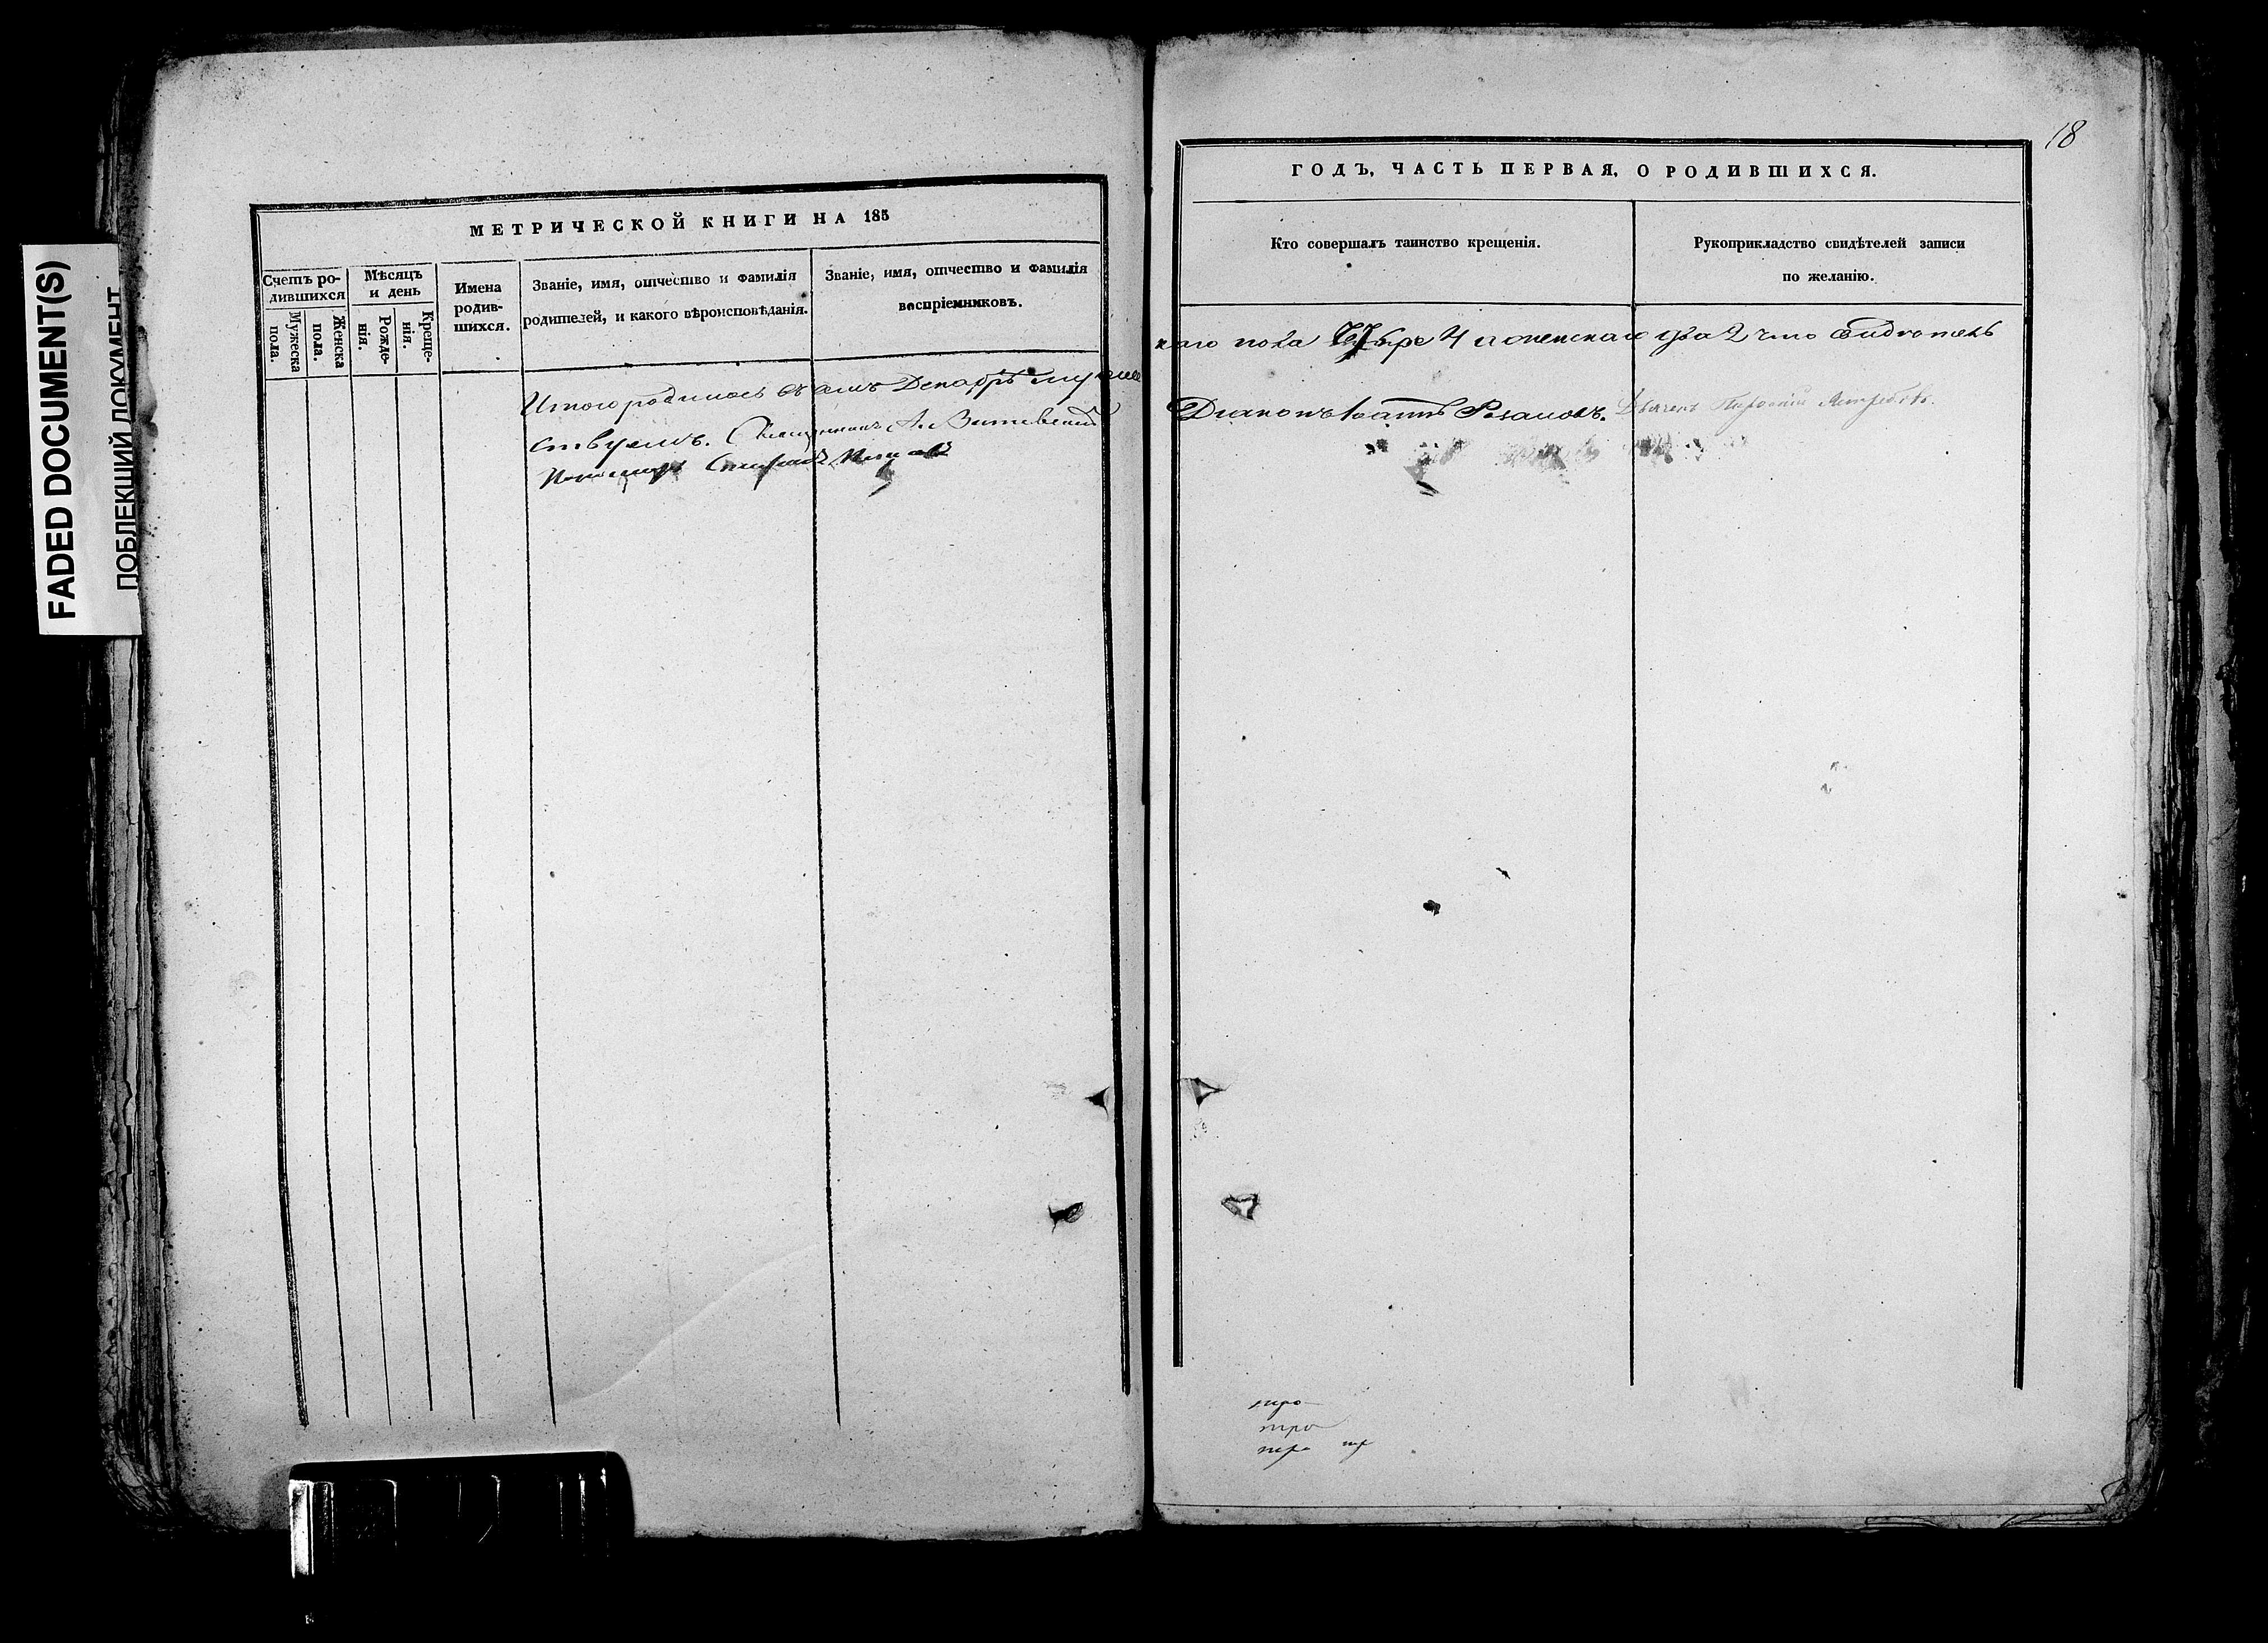 FADED DOCUMENT(S)
ПОБЛЕКШИЙ ДОКУМЕНТ
МЕТРИЧЕСКОЙ КНИГИ НА 185
Счетъ ро-
дившихся
Мужеска
пола.
Женска
пола.
Мѣсяцъ
и день
Рожде-
нія.
Креще-
нія.
Имена
родив-
шихся.
Званіе, имя, отчество и фамилія
родителей, и какого вѣроисповѣданія.
Званіе, имя, отчество и фамилія
воспріемниковъ.
Итого родилось въ семъ Декабрѣ муже
ствуемъ. Священникъ А. Витевскій
Пономарь
18
ГОДЪ, ЧАСТЬ ПЕРВАЯ, О РОДИВШИХСЯ.
Кто совершалъ таинство крещенія.
Рукоприкладство свидѣтелей записи
по желанію.
каго пола 4 а женскаго два 2 что свидѣтель
Діаконъ Іоаннъ Розановъ.
про
про
про пр